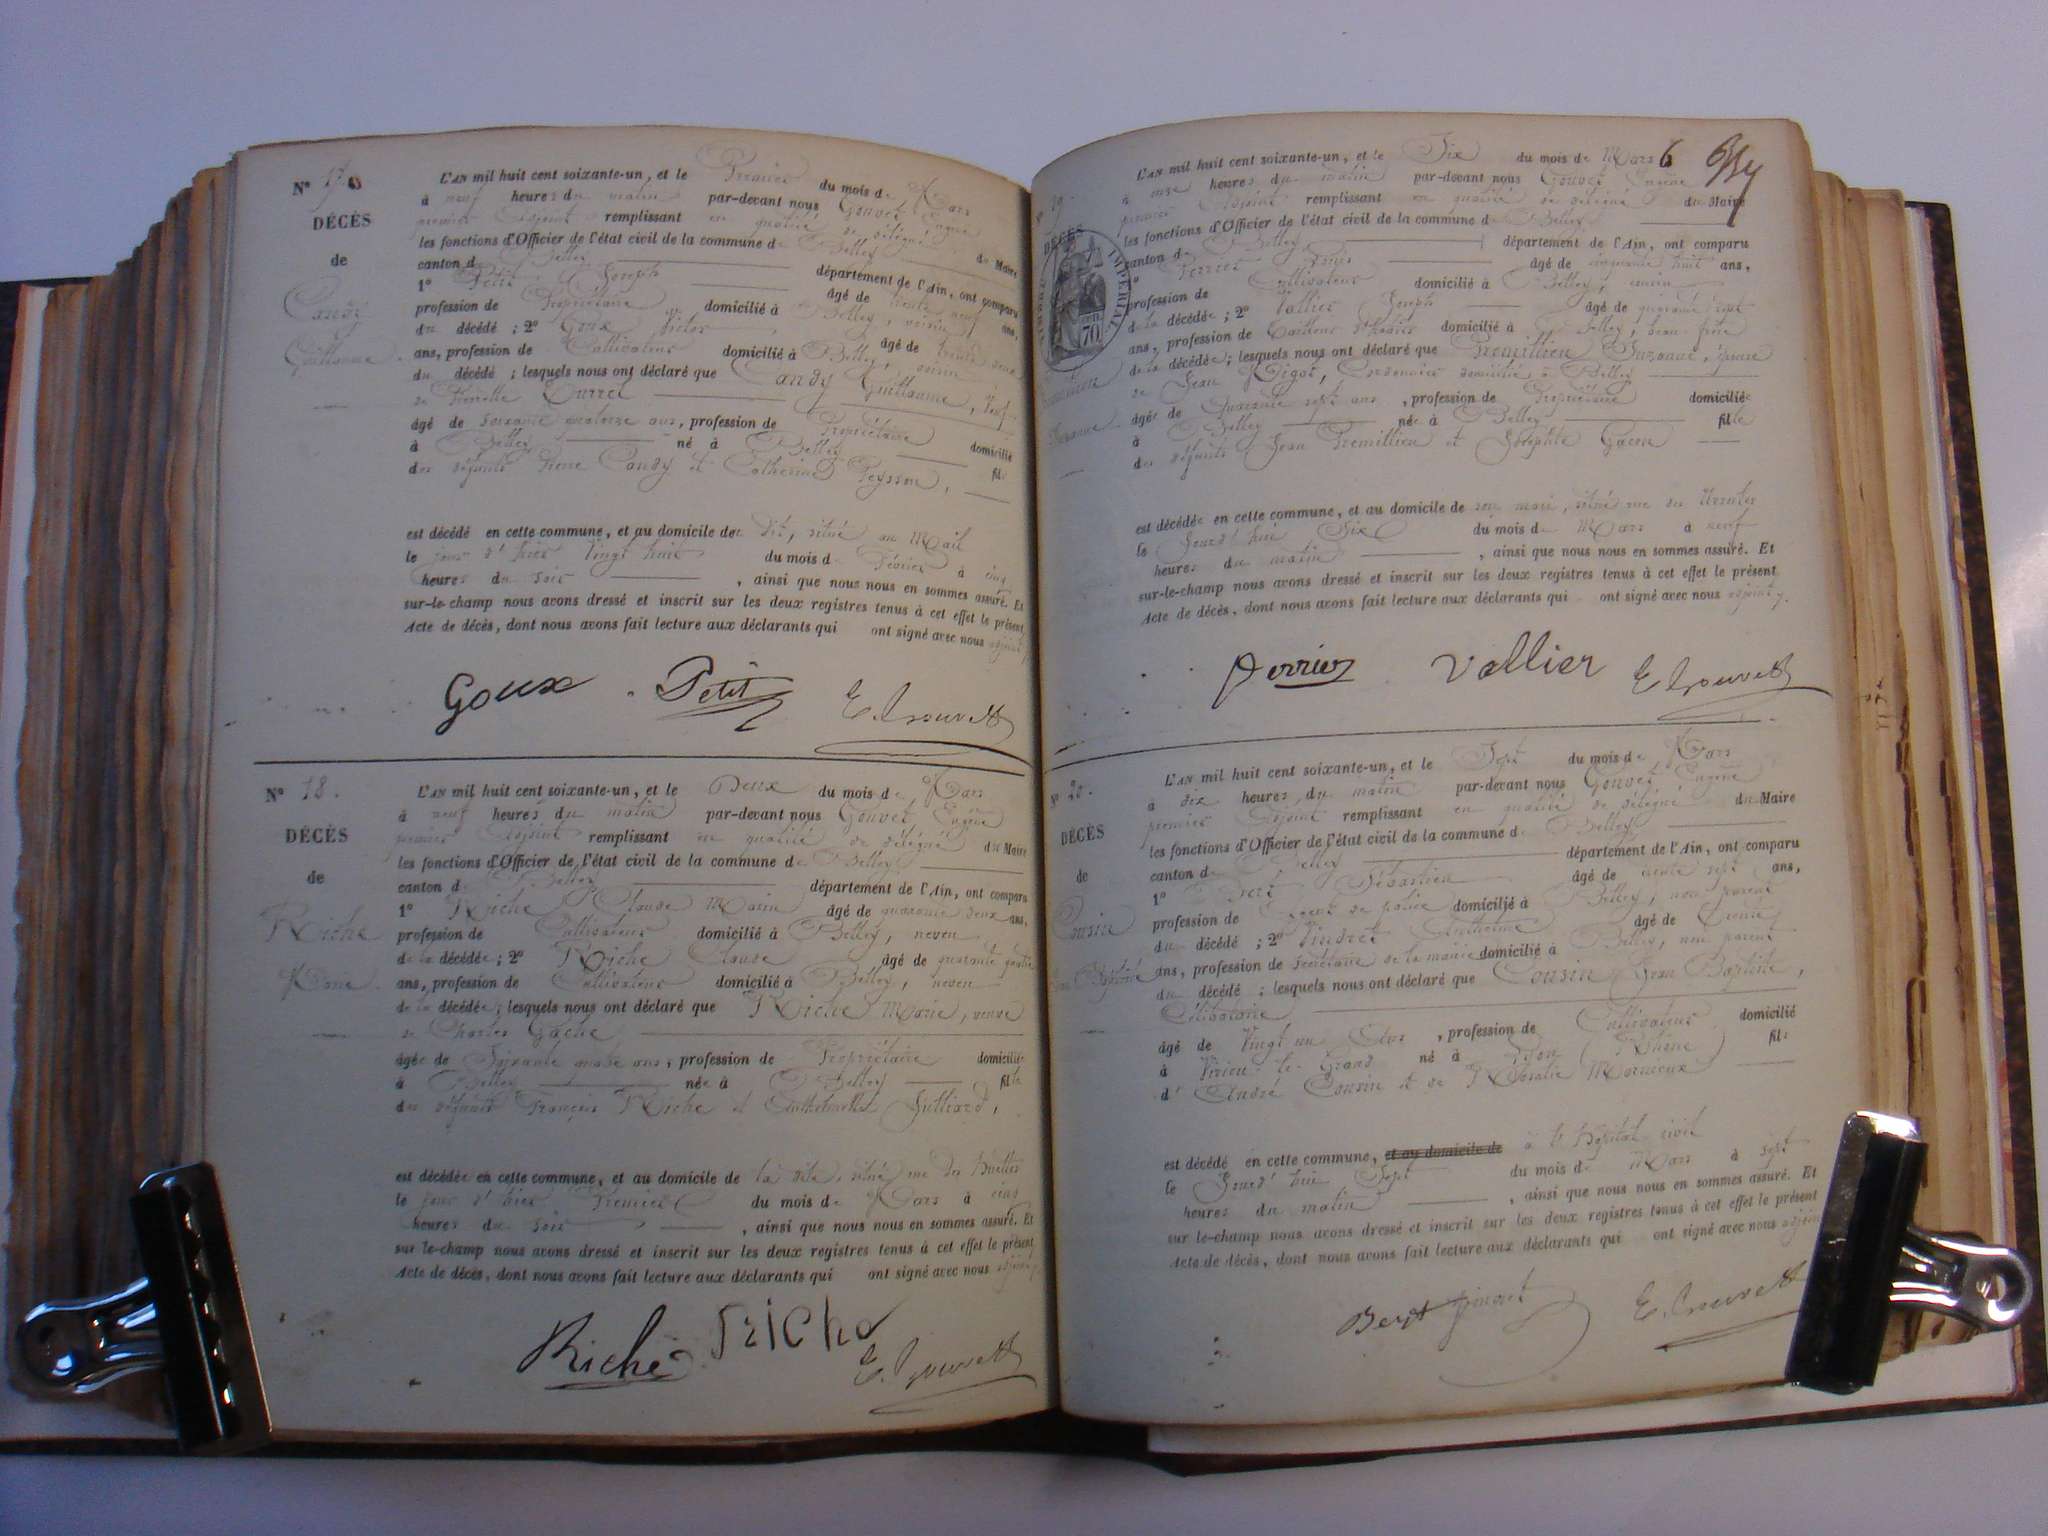 N° 17
DÉCÈS
de
Candy
Guillaume
L'AN mil huit cent soixante-un, et le Premier du mois de Mars
à neuf heures du matin par-devant nous Gouvet Eugène
premier Adjoint remplissant en qualité de délégué du Maire
les fonctions d'Officier de l'état civil de la commune de Belley
canton de Belley département de l'Ain, ont comparu
1° Petit Joseph âgé de trente neuf ans,
profession de Propriétaire domicilié à Belley, voisin
du décédé ; 2° Goux Victor âgé de trente deux
ans, profession de Cultivateur domicilié à Belley, voisin
du décédé ; lesquels nous ont déclaré que Candy Guillaume, Veuf
de Pierrette Curret
âgé de soixante quatorze ans, profession de Propriétaire domicilié
à Belley né à Belley fils
des défunts Pierre Candy et Catherine Peysson,
est décédé en cette commune, et au domicile du dit, situé au Mail
le jour d'hier vingt huit du mois de Février à cinq
heures du soir , ainsi que nous nous en sommes assuré. Et
sur-le-champ nous avons dressé et inscrit sur les deux registres tenus à cet effet le présent
Acte de décès, dont nous avons fait lecture aux déclarants qui ont signé avec nous adjoint
Goux Petit E. Gouvet
N° 18.
DÉCÈS
de
Riche
Marie
L'AN mil huit cent soixante-un, et le Deux du mois de Mars
à neuf heures du matin par-devant nous Gouvet Eugène
premier Adjoint remplissant en qualité de délégué du Maire
les fonctions d'Officier de l'état civil de la commune de Belley
canton de Belley département de l'Ain, ont comparu
1° Riche Claude Marin âgé de quarante deux ans,
profession de Cultivateur domicilié à Belley, neveu
de la décédée ; 2° Riche Claude âgé de quarante quatre
ans, profession de Cultivateur domicilié à Belley, neveu
de la décédée ; lesquels nous ont déclaré que Riche Marie, veuve
de Charles Gache
âgée de Soixante onze ans, profession de Propriétaire domiciliée
à Belley née à Belley fille
des défunts François Riche et Anthelmette Julliard,
est décédée en cette commune, et au domicile de la dite, situé rue des
le jour d'hier Premier du mois de Mars à cinq
heures du soir , ainsi que nous nous en sommes assuré. Et
sur le-champ nous avons dressé et inscrit sur les deux registres tenus à cet effet le présent
Acte de décès, dont nous avons fait lecture aux déclarants qui ont signé avec nous adjoint
Riche riche E. Gouvet
6
19.
DÉCÈS
TIMBRE IMPÉRIAL
70
L'AN mil huit cent soixante-un, et le Six du mois de Mars
à onze heures du matin par-devant nous Gouvet Eugène
premier Adjoint remplissant en qualité de délégué du Maire
les fonctions d'Officier de l'état civil de la commune de Belley
canton de Belley département de l'Ain, ont comparu
1° Perrier Louis âgé de cinquante huit ans,
profession de Cultivateur domicilié à Belley, cousin
de la décédée ; 2° Vallier Joseph âgé de quarante
ans, profession de Tailleur d'habits domicilié à Belley, beau frère
de la décédée ; lesquels nous ont déclaré que Premillieu Suzanne, épouse
de Jean Migot, Cordonnier domicilié à Belley
âgée de Quarante sept ans, profession de Propriétaire domiciliée
à Belley née à Belley fille
des défunts Jean Premillieu et Josephte Gacon
est décédée en cette commune, et au domicile de son mari, situé rue du
le Jourd'hui Six du mois de Mars à neuf
heures du matin , ainsi que nous nous en sommes assuré. Et
sur-le-champ nous avons dressé et inscrit sur les deux registres tenus à cet effet le présent
Acte de décès, dont nous avons fait lecture aux déclarants qui ont signé avec nous adjoint
Perrier Vallier E. Gouvet
N° 20.
DÉCÈS
de
Cousin
Jean Baptiste
L'AN mil huit cent soixante-un, et le Sept du mois de Mars
à dix heures du matin par-devant nous Gouvet Eugène
premier Adjoint remplissant en qualité de délégué du Maire
les fonctions d'Officier de l'état civil de la commune de Belley
canton de Belley département de l'Ain, ont comparu
1° Sébastien âgé de trente sept ans,
profession de Agent de police domicilié à Belley, non parent
du décédé ; 2° Anthelme âgé de Trente
ans, profession de Secrétaire de la mairie domicilié à Belley, non parent
du décédé ; lesquels nous ont déclaré que Cousin Jean Baptiste,
Célibataire
âgé de Vingt un Ans, profession de Cultivateur domicilié
à Virieu-le-Grand né à Lyon (Rhône) fils
d' André Cousin et de Rosalie Mornieux
est décédé en cette commune, et au domicile de à l'Hôpital civil
le Jourd'hui Sept du mois de Mars à sept
heures du matin , ainsi que nous nous en sommes assuré. Et
sur le-champ nous avons dressé et inscrit sur les deux registres tenus à cet effet le présent
Acte de décès, dont nous avons fait lecture aux déclarants qui ont signé avec nous adjoint
E. Gouvet